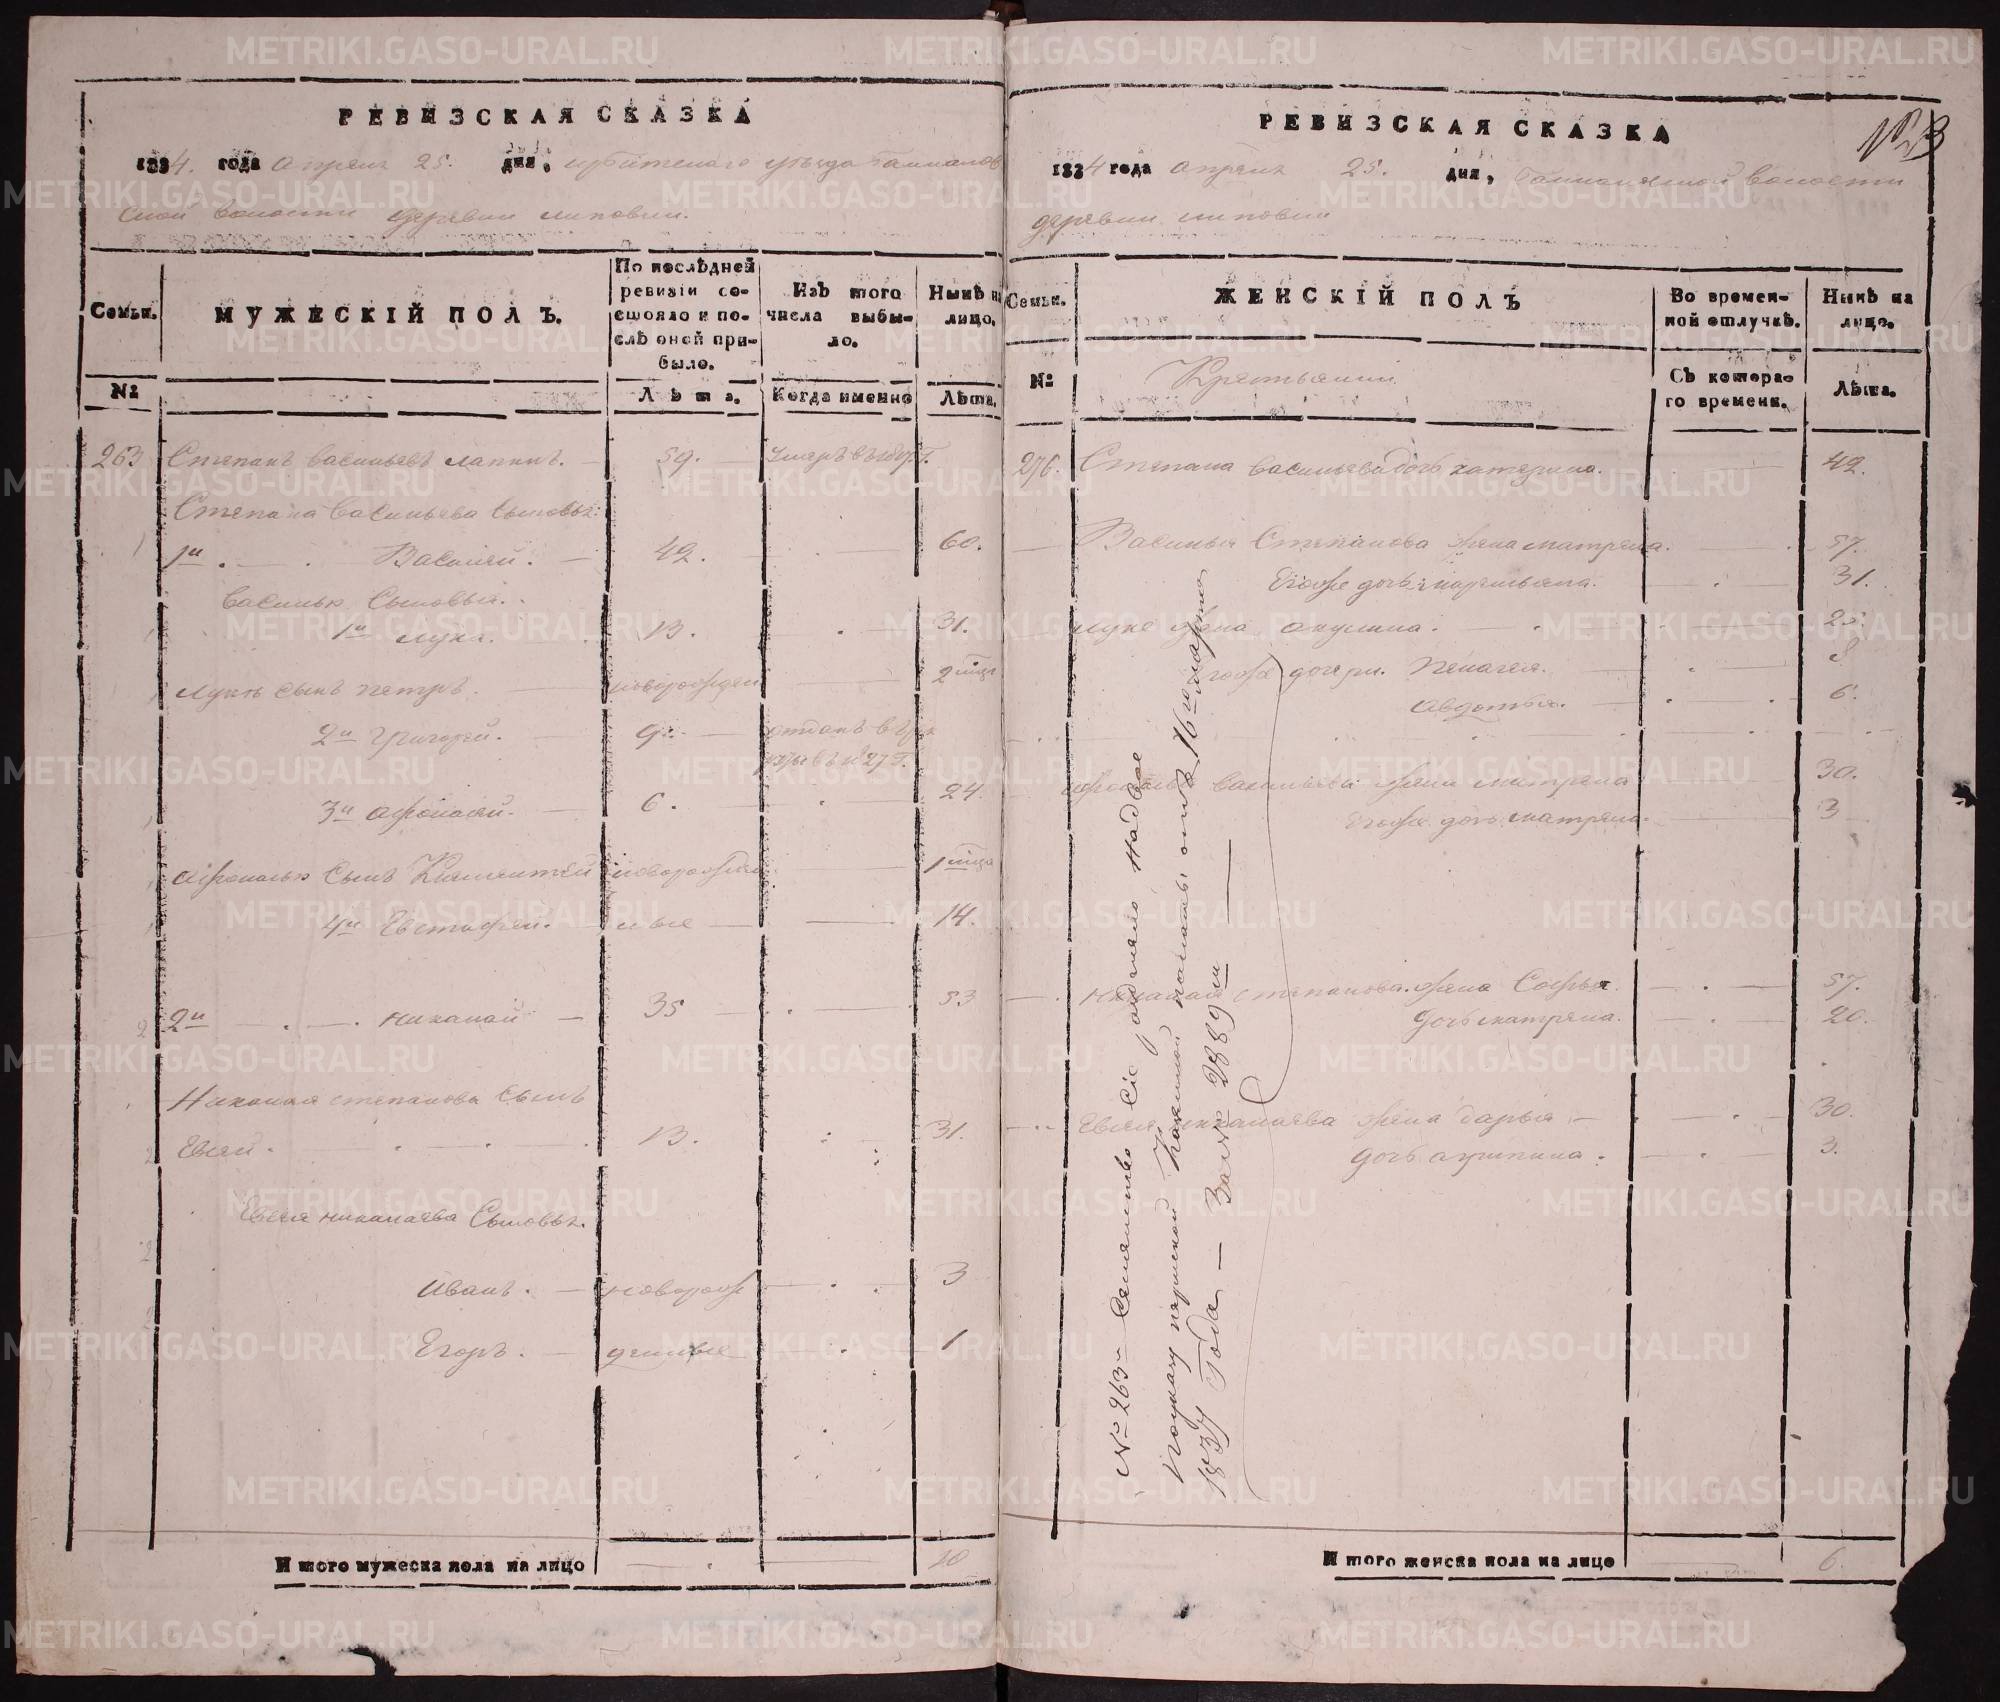 РЕВИЗСКАЯ СКАЗКА
1834. года апреля 25. дня, ирбитскаго уезда
ской волости деревни липовки.
Семьи.
МУЖЕСКІЙ ПОЛЪ.
По послѣдней ревизіи состояло и послѣ оной прибыло.
Изъ того числа выбыло.
Нынѣ на лицо.
№
Лѣта.
Когда именно
Лѣта.
263 Степанъ васильевъ лапинъ. 59. умеръ въ
Степана васильева сыновья:
1й Василей. 42. 60.
василья сыновья.
1й лука. 13. 31.
луки сынъ петръ. новорожден 2
2й григорей. 9. отданъ в
27 г.
3й афонасей. 6. 24.
афонасья сынъ новорожден 1
4й Евстафей. 14.
2й николай 35 53
Николая степанова сынъ
Евсей. 13. 31.
Евсея николаева сыновья.
иванъ. новорож 3
Егоръ. 1
И того мужеска пола на лицо 10
РЕВИЗСКАЯ СКАЗКА
1834 года апреля 25. дня, волости
деревни липовки
Семьи.
ЖЕНСКІЙ ПОЛЪ
Во временной отлучкѣ.
Нынѣ на лицо.
№
Крестьянки
Съ котораго времени.
Лѣта.
276. Степана васильева дочь катерина. 42.
Василья Степанова жена матрена. 57.
Егоже дочь 31.
луки жена акулина. 25.
егоже дочери. Пелагея. 8
авдотья. 6.
афонасья васильева жена матрена 30.
Егоже дочь матрена. 3
николая степанова жена Софья. 57.
дочь матрена. 20.
Евсея николаева жена дарья 30.
дочь 3.
И того женска пола на лице 6.
№ 263й семейство сіе
пермской казенной палаты отъ 16го марта
1837 Года За № 2889м
METRIKI.GASO-URAL.RU